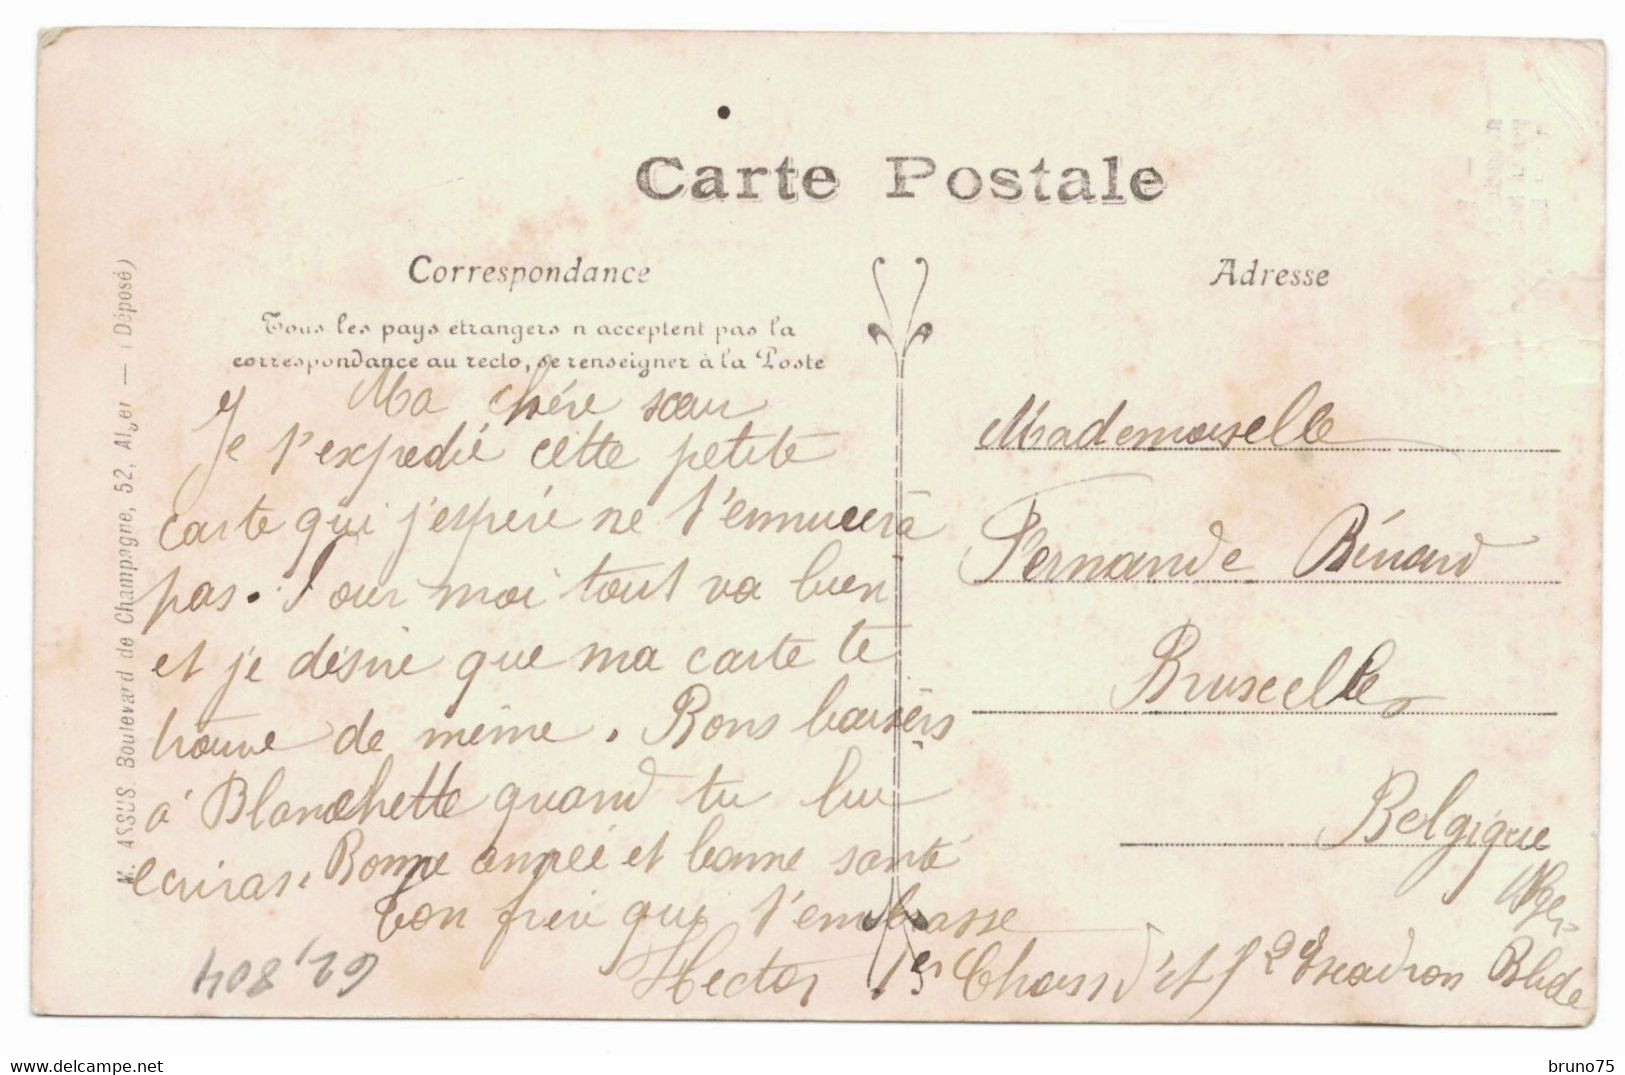 Carte Postale
Correspondance
Tous les pays étrangers n'acceptent pas la
correspondance au recto, se renseigner à la Poste
Ma chère sœur
Je t'expedié cette petite
carte qui j'espère ne t'ennuiera
pas. Pour moi tout va bien
et je désire que ma carte te
trouve de même. Bons baisers
à Blanchette quand tu lui
ecriras. Bonne année et bonne santé
Ton frère qui t'embrasse
Hector 1er Chass d'Af 2e Escadron Blida
Alger
Adresse
Mademoiselle
Fernande Bénard
Bruxelles
Belgique
M. ASSUS. Boulevard de Champagne, 52, Alger — (Déposé)
62,804
bruno75